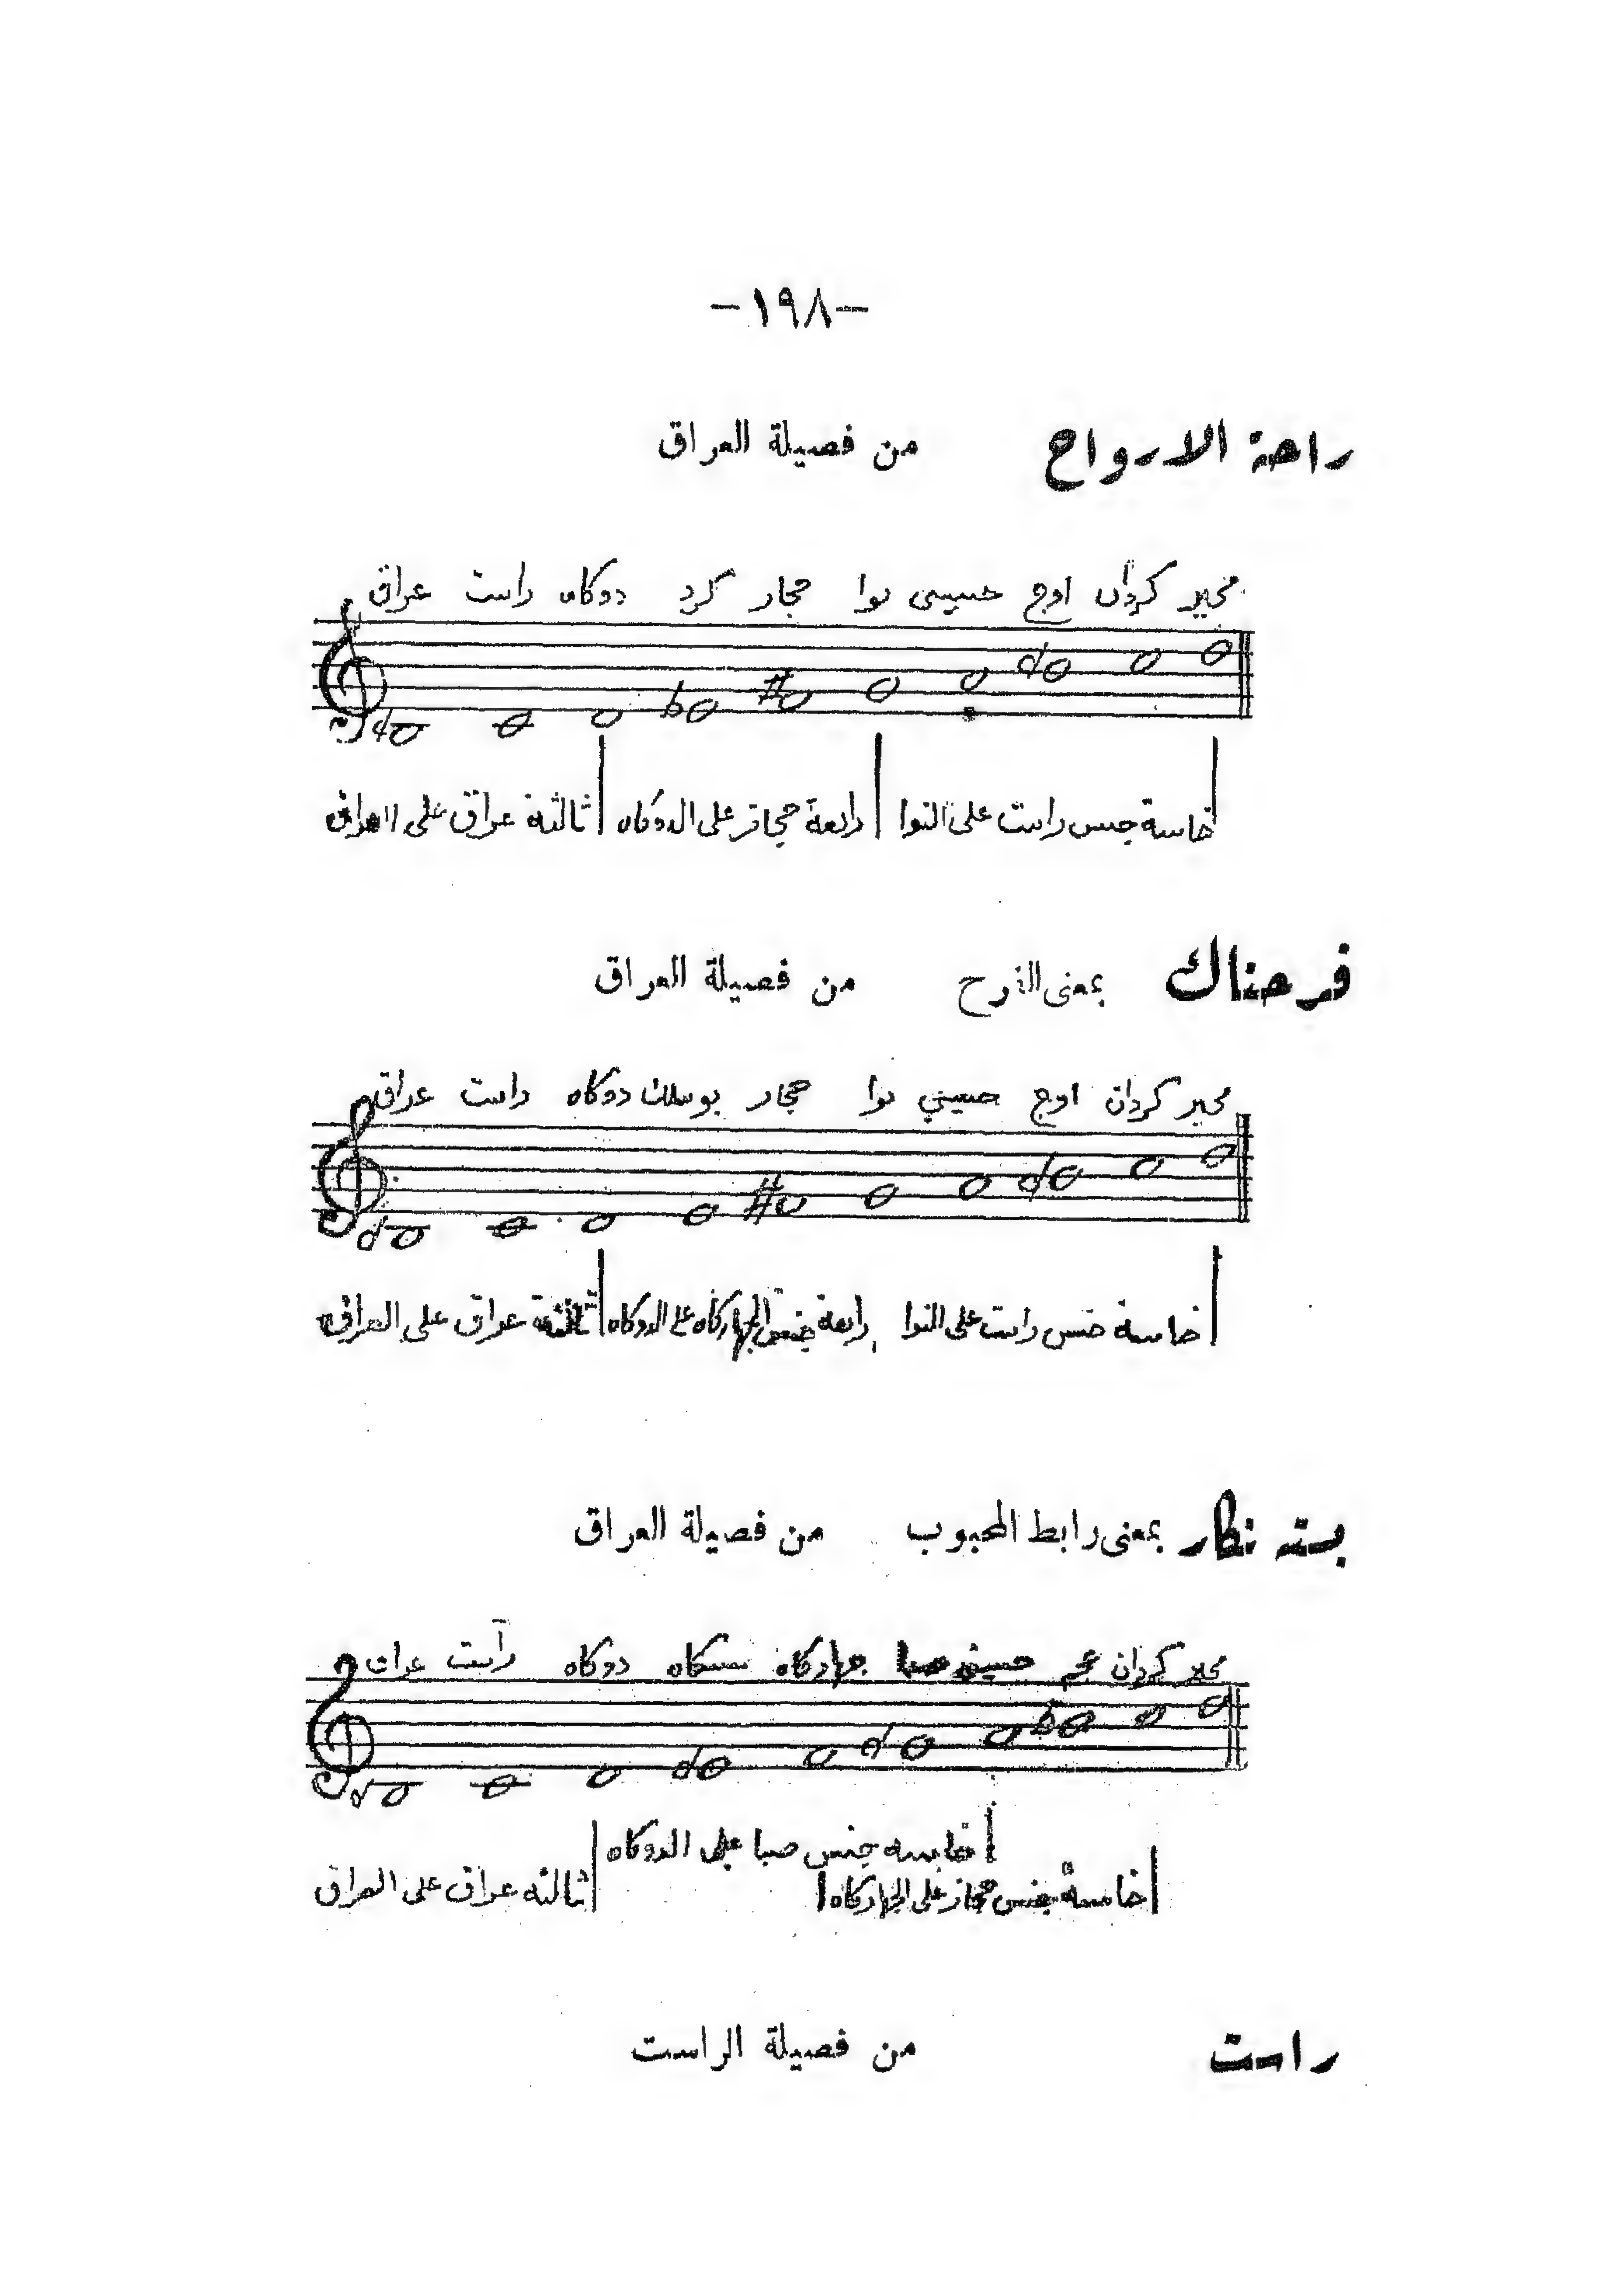 -١٩٨-
راحة الارواح من فصيلة العراق
محير كردان اوج حسيني نوا حجاز كرد دوكاه راست عراق
خامسة جنس راست على النوا رابعة حجاز على الدوكاه ثالثة عراق على العراق
فرحناك بمعنى الفرح من فصيلة العراق
محير كردان اوج حسيني نوا حجاز بوسلك دوكاه راست عراق
خامسة جنس راست على النوا رابعة جنس الجهاركاه على الدوكاه ثالثة عراق على العراق
بسته نكار بمعنى رابط المحبوب من فصيلة العراق
محير كردان عجم حسيني صبا جهاركاه سيكاه دوكاه راست عراق
خامسه جنس صبا على الدوكاه
خامسة جنس حجاز على الجهاركاه ثالثه عراق على العراق
راست من فصيلة الراست